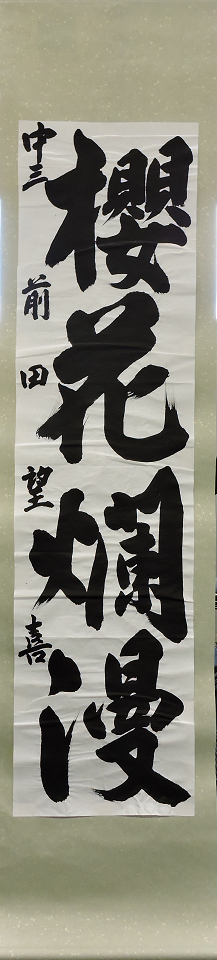 櫻花爛漫
中三 前田望喜